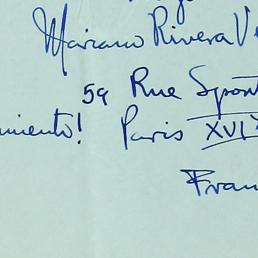 Mariano Rivera Ve
59 Rue Spont
miento! Paris XVI
Fran